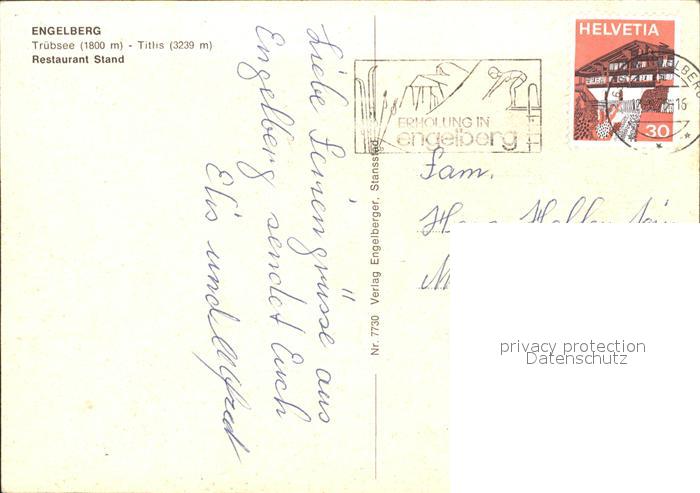 ENGELBERG
Trübsee (1800 m) - Titlis (3239 m)
Restaurant Stand
Liebe Feriengrüsse aus
Engelberg sendet Euch
Elis und Alfred
Nr. 7730 Verlag Engelberger, Stansstad
ERHOLUNG IN
engelberg
HELVETIA
30
ENGELBERG
Fam.
privacy protection
Datenschutz